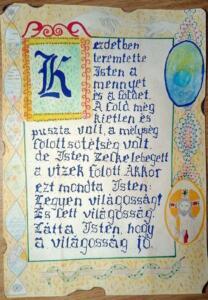 Kezdetben
teremtette
Isten a
mennyet
és a földet.
A föld még
kietlen és
puszta volt, a mélység
fölött sötétség volt,
de Isten Lelke lebegett
a vizek fölött. Akkor
ezt mondta Isten:
Legyen világosság!
És lett világosság.
Látta Isten, hogy
a világosság jó.